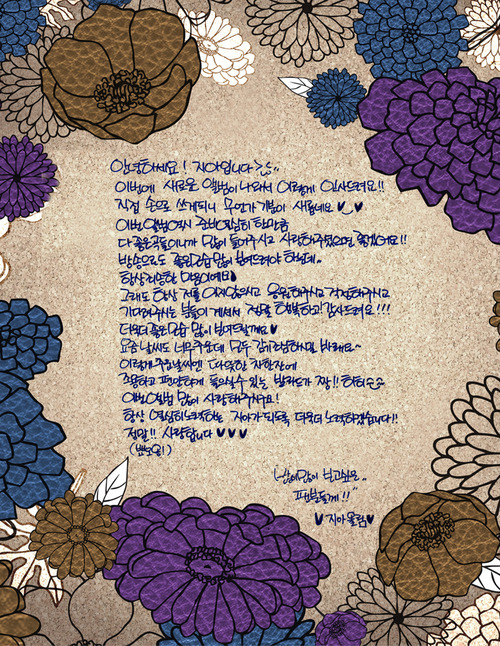 안녕하세요! 지아입니다 >_<..
이번에 새로운 앨범이 나와서 이렇게 인사드려요!!
직접 손으로 쓰게되니 무언가 기분이 새롭네요 ♥◡♥
이번 앨범역시 준비열심히 한만큼
다 좋은곡들이니까 많이 들어주시고 사랑해주셨으면 좋겠어요!!
방송으로도 좋은모습 많이 보여드려야 하는데..
항상 죄송한 마음이에요♥
그래도 항상 저를 잊지않으시고 응원해주시고 걱정해주시고
기다려주시는 분들이 계셔서 정말 행복하고! 감사드려요!!!
더욱더 좋은모습 많이 보여드릴께요♥
요즘 날씨도 너무추운데 모두 감기조심하시길 바래요~
이렇게 추운날씨엔 따뜻한 차한잔에
조용하고 편안하게 들으실수 있는 발라드가 짱!!
이번앨범 많이 사랑해주세요!
항상 열심히노력하는 지아가 되도록 더욱더 노력하겠습니다!!
정말!! 사랑합니다 ♥♥♥
많이많이 보고싶은..
팬분들께!!"
♥지아올림♥